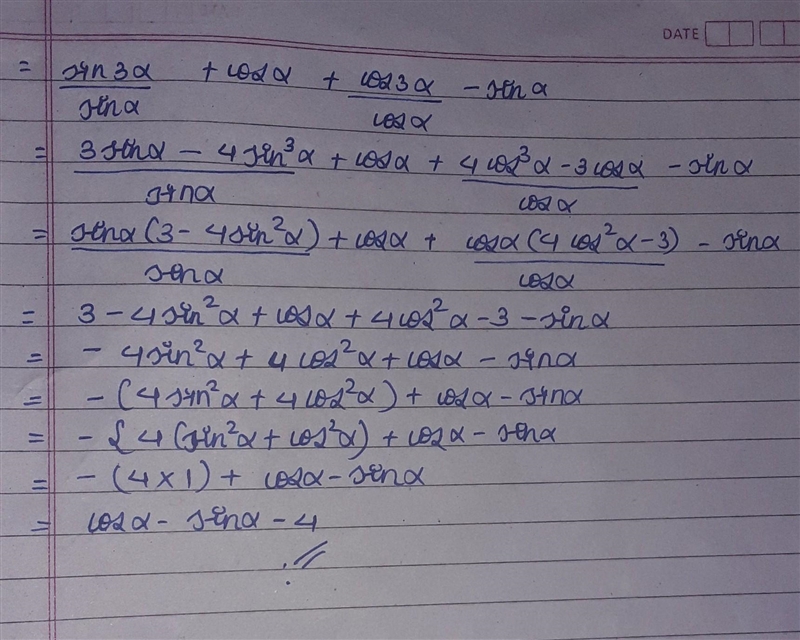 DATE
= sin3α/sinα + cosα + cos3α/cosα - sinα
= 3sinα - 4sin³α/sinα + cosα + 4cos³α - 3cosα/cosα - sinα
= sinα(3 - 4sin²α)/sinα + cosα + cosα(4cos²α - 3)/cosα - sinα
= 3 - 4sin²α + cosα + 4cos²α - 3 - sinα
= - 4sin²α + 4cos²α + cosα - sinα
= - (4sin²α + 4cos²α) + cosα - sinα
= - { 4(sin²α + cos²α) + cosα - sinα
= - (4×1) + cosα - sinα
= cosα - sinα - 4